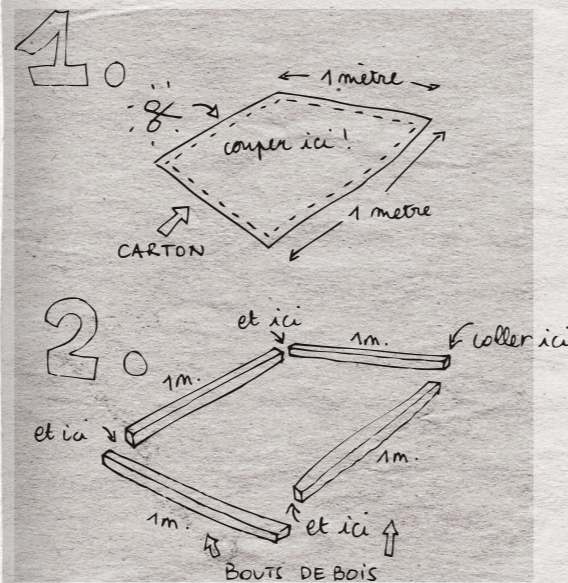 1.
1 mètre
couper ici !
1 metre
CARTON
2.
et ici
1m.
coller ici
1m.
et ici
1m.
1m.
et ici
BOUTS DE BOIS